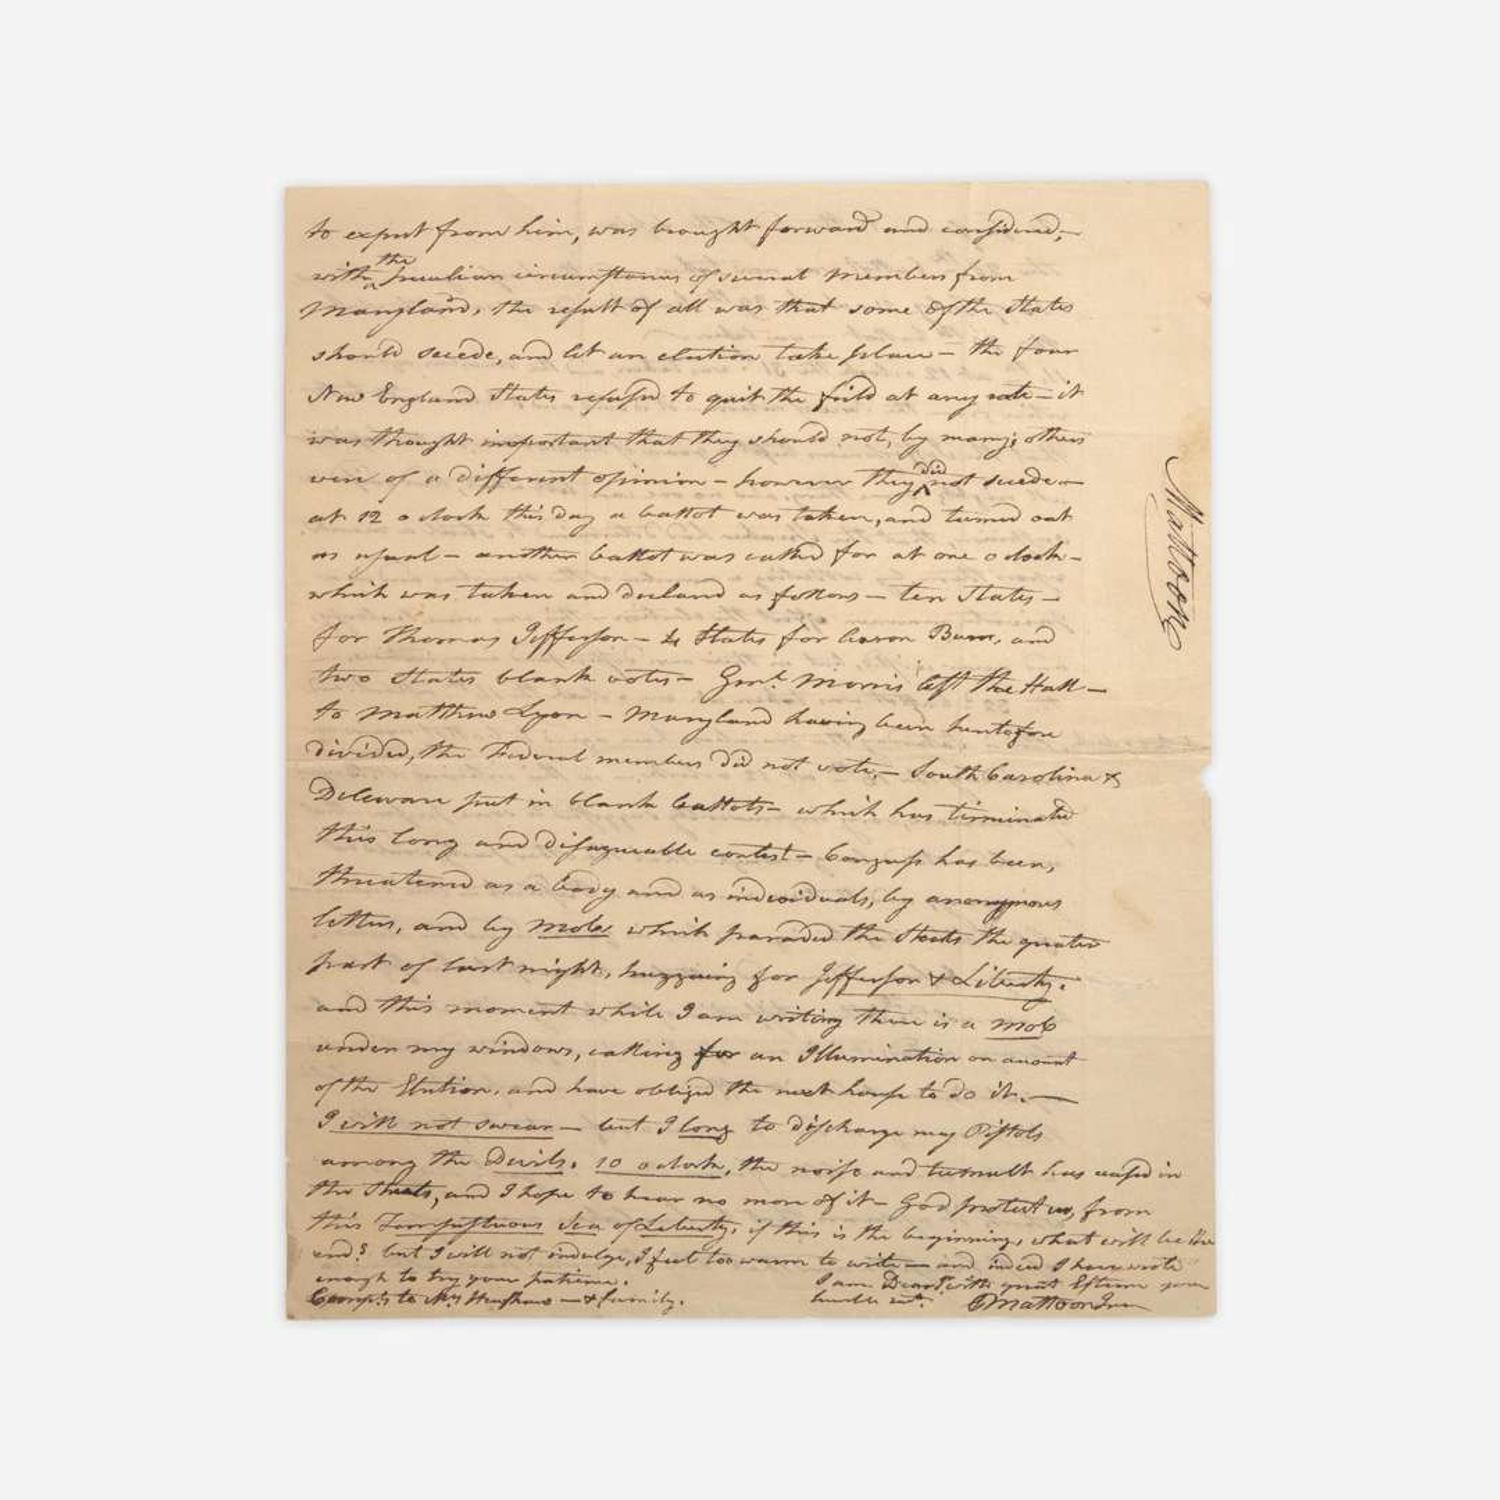 to expect from him, was brought forward and considered,—
with the peculiar circumstances of several members from
Maryland, the result of all was that some of the States
should secede, and let an election take place — the four
New England States refused to quit the field at any rate — it
was thought important that they should not, by many; others
were of a different opinion — however they did not secede —
at 12 o clock this day a ballot was taken, and turned out
as usual — another ballot was called for at one o clock —
which was taken and declared as follows — ten States —
for Thomas Jefferson — 4 States for Aaron Burr, and
two States blank votes — Genl. Morris left the Hall —
to Matthew Lyon — Maryland having been heretofore
divided, the Federal members did not vote, — South Carolina &
Deleware put in blank ballots — which has terminated
this long and disagreeable contest — Congress has been,
threatened as a body and as individuals, by anonymous
letters, and by mobs which paraded the Streets the greater
part of last night, huzzaing for Jefferson & Liberty.
and this moment while I am writing there is a mob
under my windows, calling for an Illumination on account
of the Election, and have obliged the next house to do it. —
I will not swear — but I long to discharge my Pistols
among the Devils. 10 o clock, the noise and tumult has ceased in
the Streets, and I hope to hear no more of it — God protect us, from
this Tempestuous Sea of Liberty, if this is the beginning, what will be the
end? but I will not indulge, I feel too warm to write — and indeed I have wrote
enough to try your patience.
I am Dear Sr. with great Esteem your
humble sert.
Compts. to Mrs. Henshaw — & family.
E Mattoon Jun
Mattoon